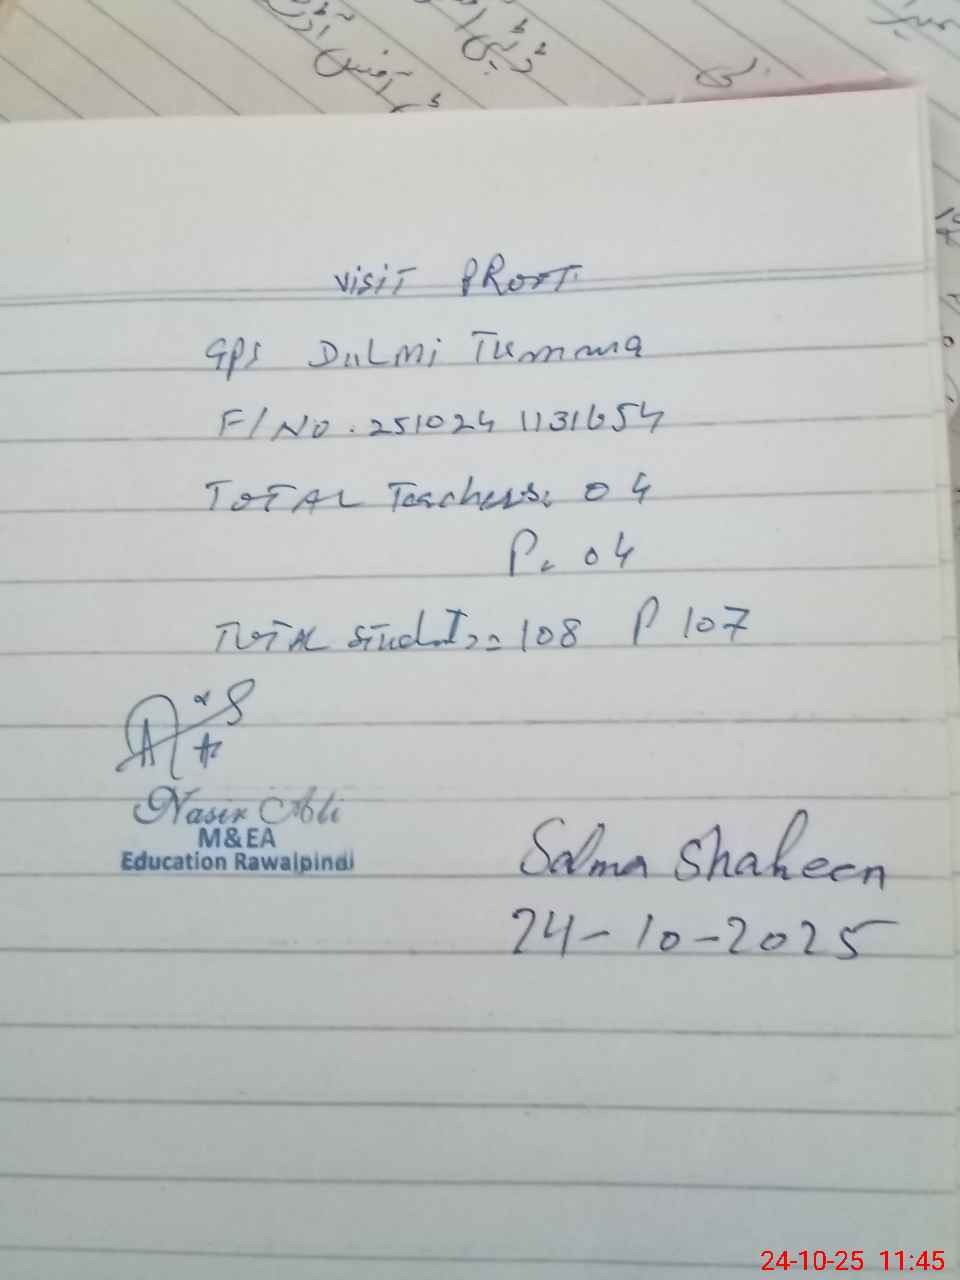 visit PRort
GPS Dulmi Tumma
F/No. 251024 1131654
Total Teachers: 04
P. 04
Total Students = 108 P 107
Nasir Ali
M&EA
Education Rawalpindi
Salma Shaheen
24-10-2025
24-10-25 11:45